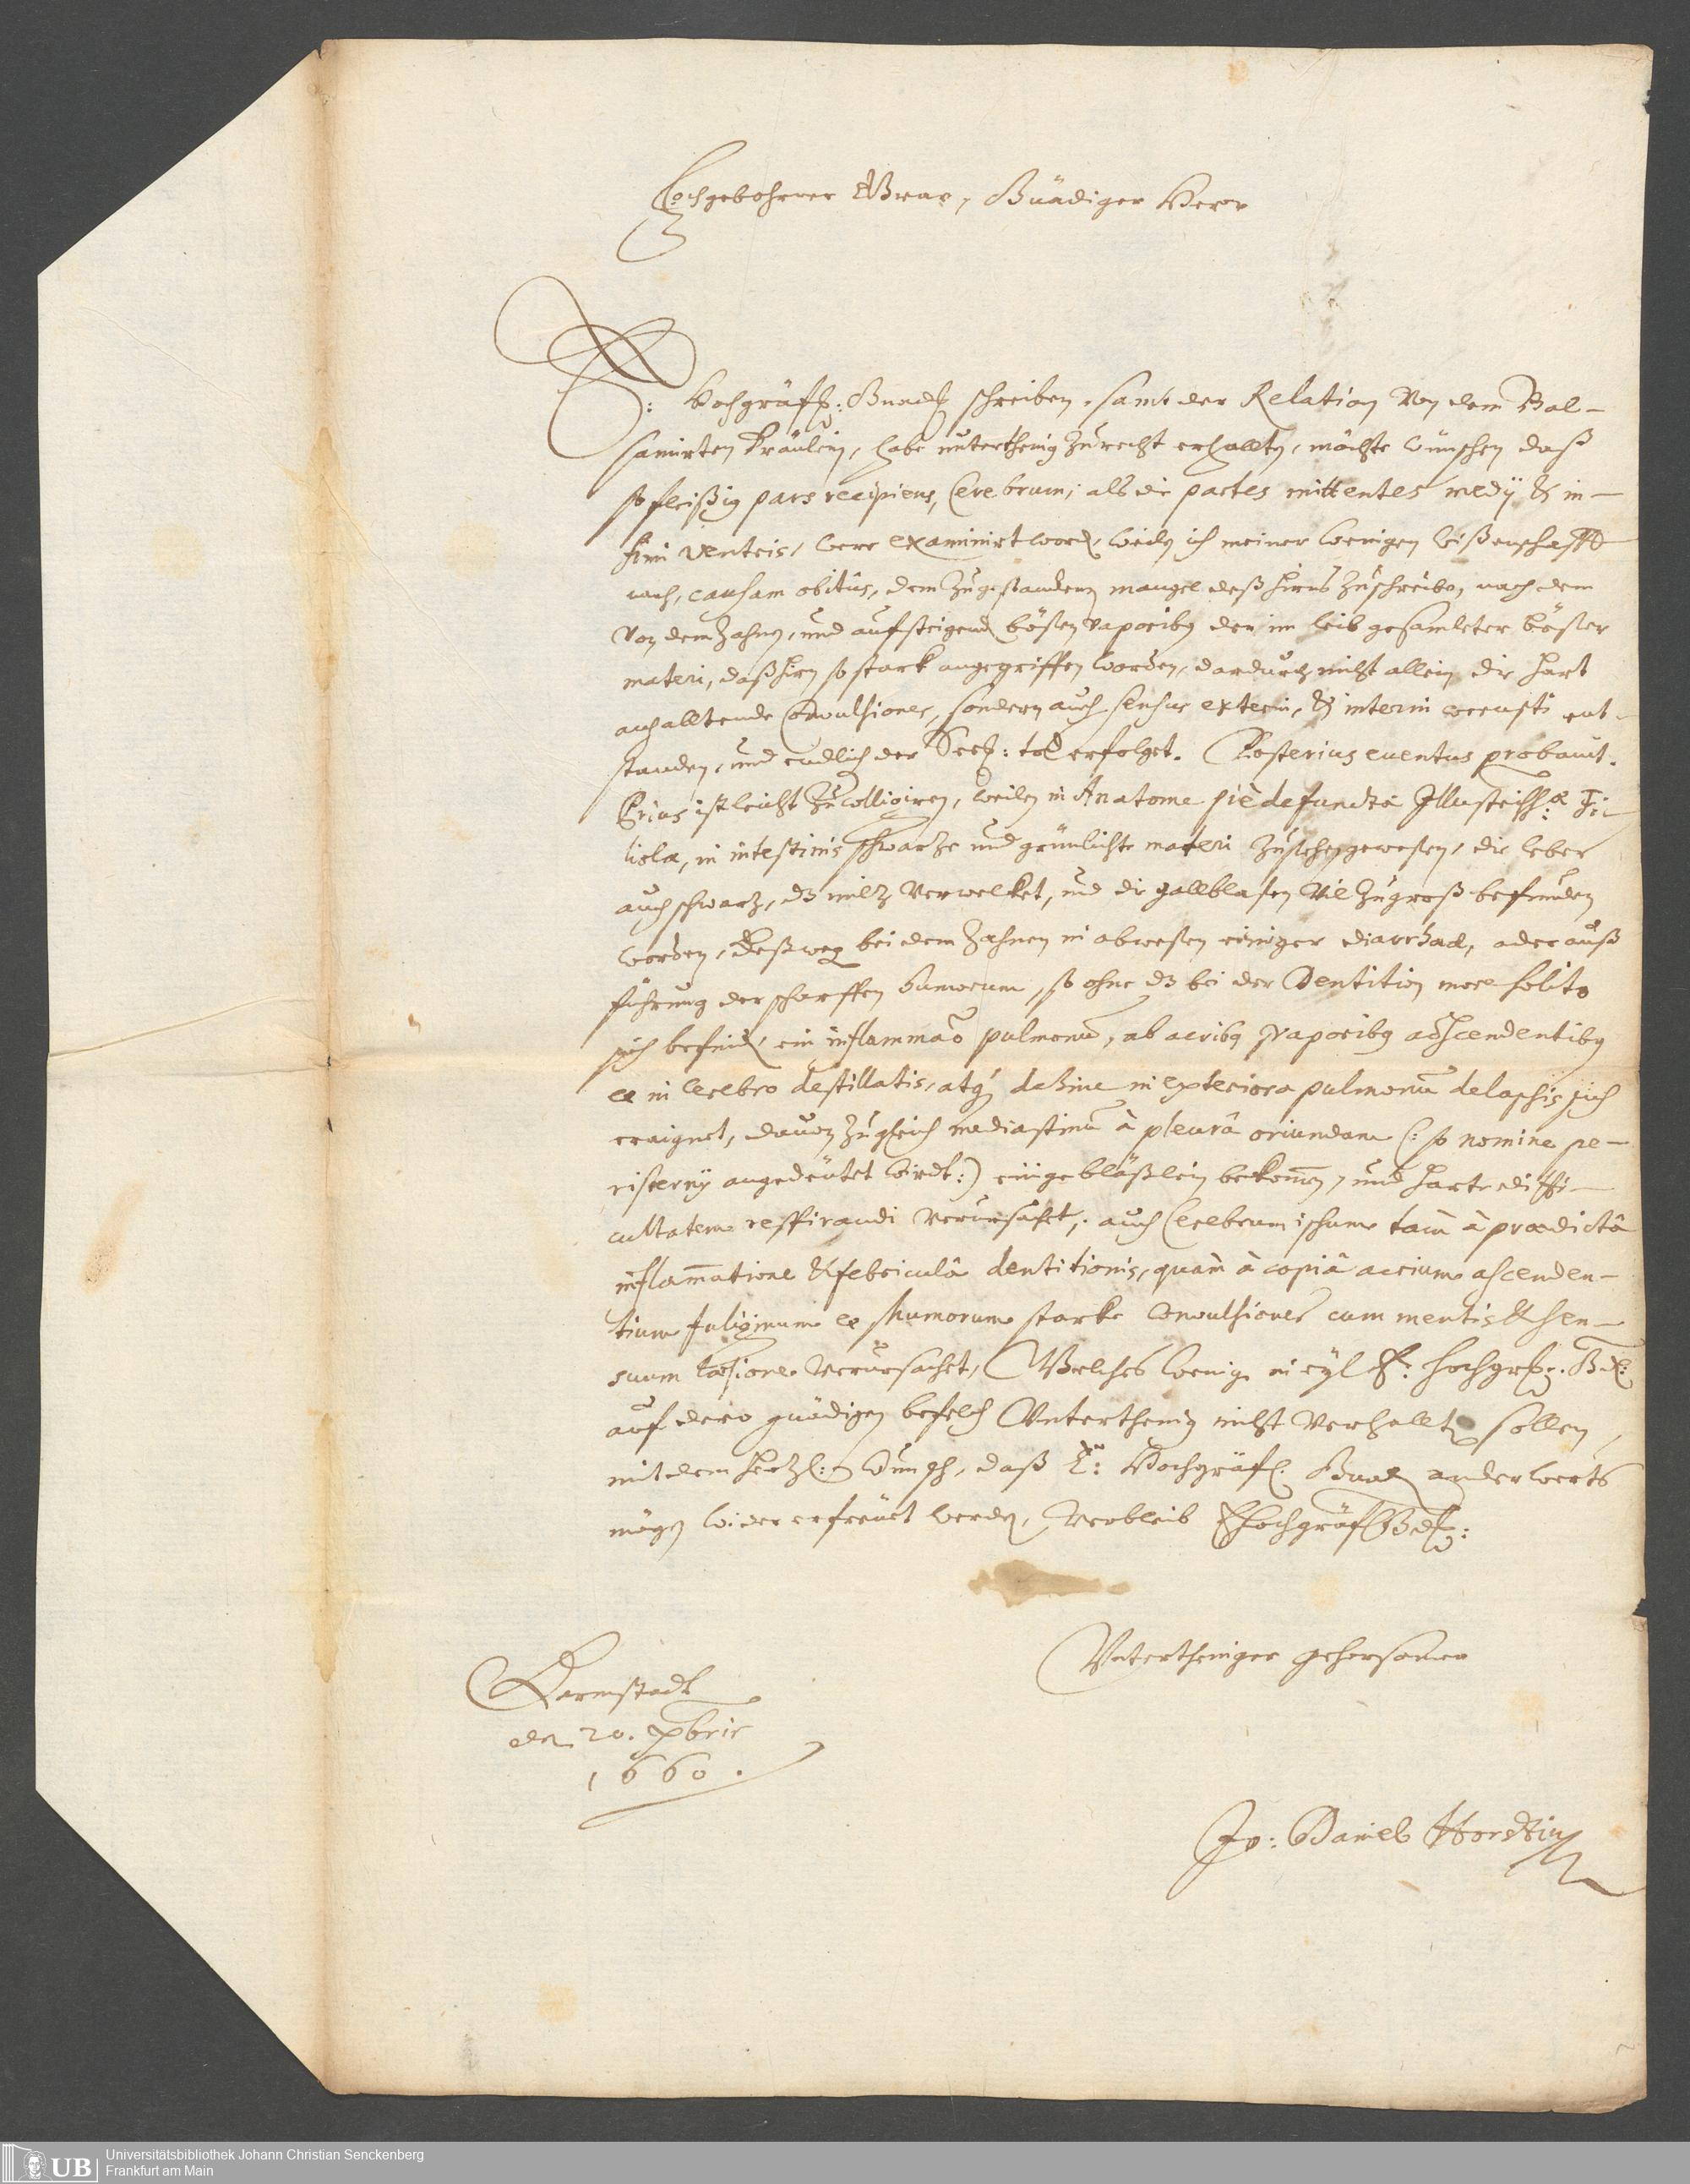 Hochgebohrner Graf, Gnädiger Herr
E: Hochgräfl: Gnad: schreiben, samt der Relation Von dem Bal-
samirten Fräulein, habe unterthenig zu recht erhallten, möchte wünschen daß
so fleißig pars recipiens, Cerebrum, als die partes mittentes medij & in-
fimi ventris, were examinirt worden, weiln ich meiner wenigen wißenschafft
nach, causam obitus, dem zugestandenen mangel deß hirns zuschreibe, nach dem
Von dem Zahnen, und aufsteigenden bößen vaporibus der im leib gesamleter bößer
materi, daß hirn so stark angegriffen worden, dardurch nicht allein die hart
anhalltende Convulsiones, sondern auch sensus externi, & interni ent-
standen, und endlich der Seel: tod erfolget. Posterius eventus probavit.
Prius ist leicht zu colligiren, weilen in Anatome piè defunctæ Illustriss:æ Fi-
liolæ, in intestinis schwartze und grünlichte materi zusehen gewesen, die leber
auch schwartz, dz miltz Verwelcket, und die gallblasen Vil zu groß befunden
worden, Deßweg bei dem Zahnen in abwesen einiger diarrhææ, oder auß
führung der scharffen humorum, so ohne dz bei der Dentition more solito
sich befindt, ein inflammão pulmonũ, ab acribus vaporibus adscendentibus
ex in Cerebro destillatis, atq; dehinc in exteriora pulmonũ delapsis sich
eraignet, davon zugleich mediastinũ à pleurâ oriundam (: so nomine pe-
risternij angedeutet wirdt:) einige bläßlein bekommen, und harte diffi-
cultatem respirandi verursacht, auch Cerebrum ipsum tam à prædictâ
inflam̃atione & febriculâ dentitionis, quàm à copiâ acrium ascenden-
tium fuliginum ex humorum starke Convulsiones cum mentis & sen-
suum læsione verursachet, Welches wenige in eyl E: hochgrfl: Gd:
auf dero gnädigen befelch Unterthenig nicht Verhallten sollen,
mit dem hertzl: Wunsch, daß E: Hochgräfl. Gnad anderwerts
mögen wider erfreuet werden, Verbleib E Hochgräfl Gd:
Unterthäniger gehorsamer
Darmstadt
den 20. Xbris
1660.
Jo: Daniel Horstius
Universitätsbibliothek Johann Christian Senckenberg
Frankfurt am Main
UB